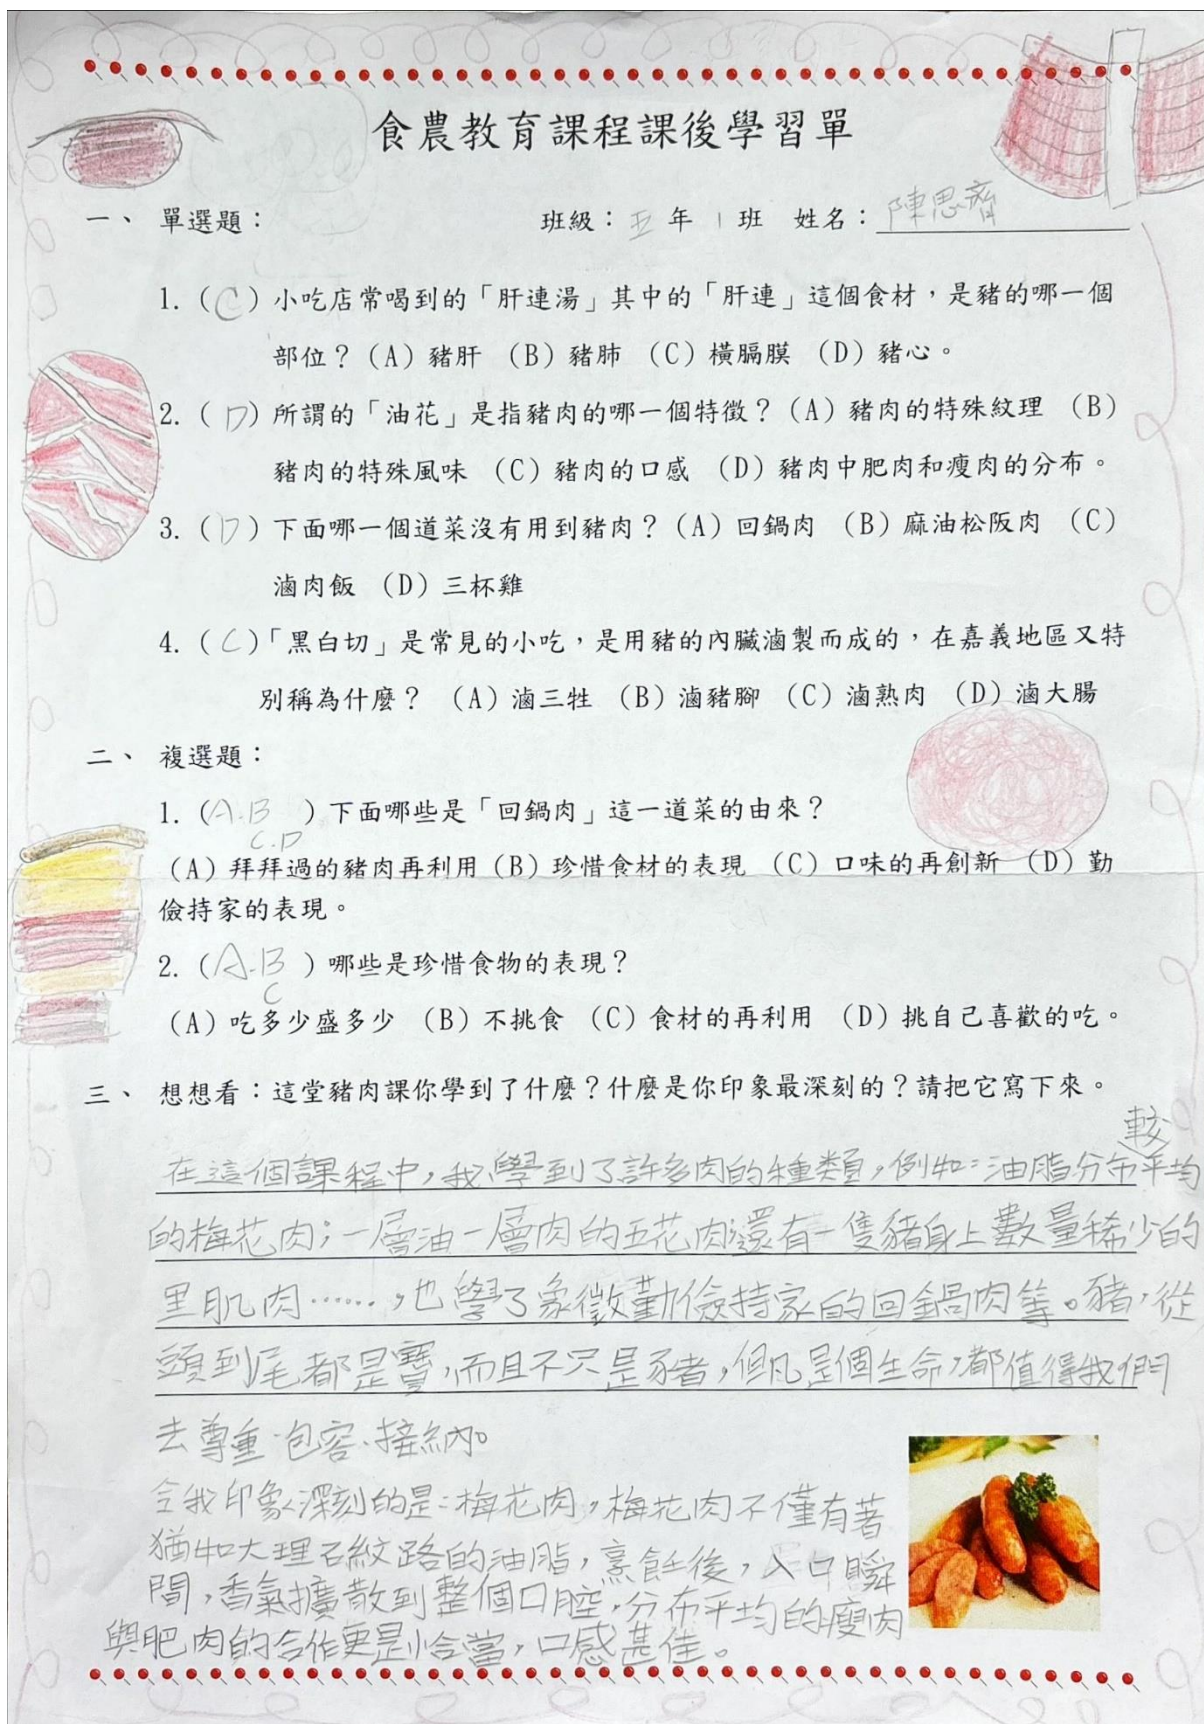 食農教育課程課後學習單
一、 單選題： 班級：五年1班 姓名：陳思齊
1. (C) 小吃店常喝到的「肝連湯」其中的「肝連」這個食材，是豬的哪一個
部位？(A) 豬肝 (B) 豬肺 (C) 橫膈膜 (D) 豬心。
2. (D) 所謂的「油花」是指豬肉的哪一個特徵？(A) 豬肉的特殊紋理 (B)
豬肉的特殊風味 (C) 豬肉的口感 (D) 豬肉中肥肉和瘦肉的分布。
3. (D) 下面哪一個道菜沒有用到豬肉？(A) 回鍋肉 (B) 麻油松阪肉 (C)
滷肉飯 (D) 三杯雞
4. (C)「黑白切」是常見的小吃，是用豬的內臟滷製而成的，在嘉義地區又特
別稱為什麼？ (A) 滷三牲 (B) 滷豬腳 (C) 滷熟肉 (D) 滷大腸
二、 複選題：
1. (A.B ) 下面哪些是「回鍋肉」這一道菜的由來？
C.D
(A) 拜拜過的豬肉再利用 (B) 珍惜食材的表現 (C) 口味的再創新 (D) 勤
儉持家的表現。
2. (A.B ) 哪些是珍惜食物的表現？
C
(A) 吃多少盛多少 (B) 不挑食 (C) 食材的再利用 (D) 挑自己喜歡的吃。
三、 想想看：這堂豬肉課你學到了什麼？什麼是你印象最深刻的？請把它寫下來。
較
在這個課程中，我學到了許多肉的種類，例如：油脂分布平均
的梅花肉；一層油一層肉的五花肉還有一隻豬身上數量稀少的
里肌肉……，也學了象徵勤儉持家的回鍋肉等。豬，從
頭到尾都是寶，而且不只是豬，但凡是個生命，都值得我們
去尊重、包容、接納。
令我印象深刻的是：梅花肉，梅花肉不僅有著
猶如大理石紋路的油脂，烹飪後，入口瞬
間，香氣擴散到整個口腔，分布平均的瘦肉
與肥肉的合作更是恰當，口感甚佳。